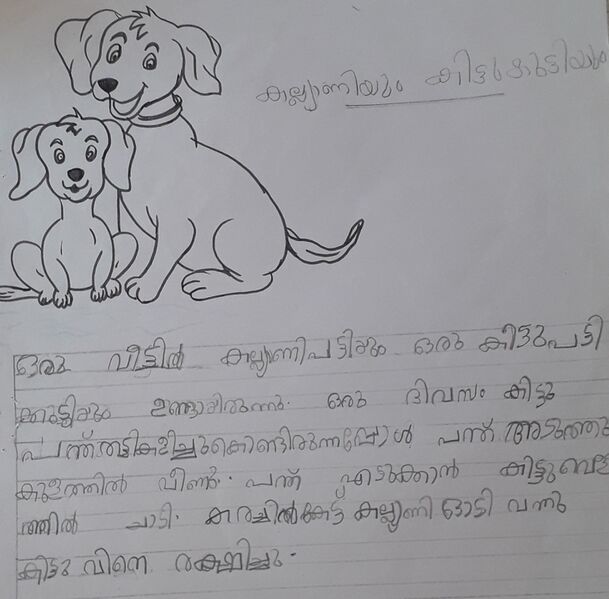 കല്യാണിയും കിട്ടുകുട്ടിയും
ഒരു വീട്ടിൽ കല്യാണിപട്ടിയും ഒരു കിട്ടുപട്ടി
ക്കുട്ടിയും ഉണ്ടായിരുന്നു. ഒരു ദിവസം കിട്ടു
പന്ത് തട്ടികളിച്ചുകൊണ്ടിരുന്നപ്പോൾ പന്ത് അടുത്തു
കുളത്തിൽ വീണു. പന്ത് എടുക്കാൻ കിട്ടു
ത്തിൽ ചാടി. കരച്ചിൽകേട്ട് കല്യാണി ഓടി വന്നു
കിട്ടു വിനെ രക്ഷിച്ചു.